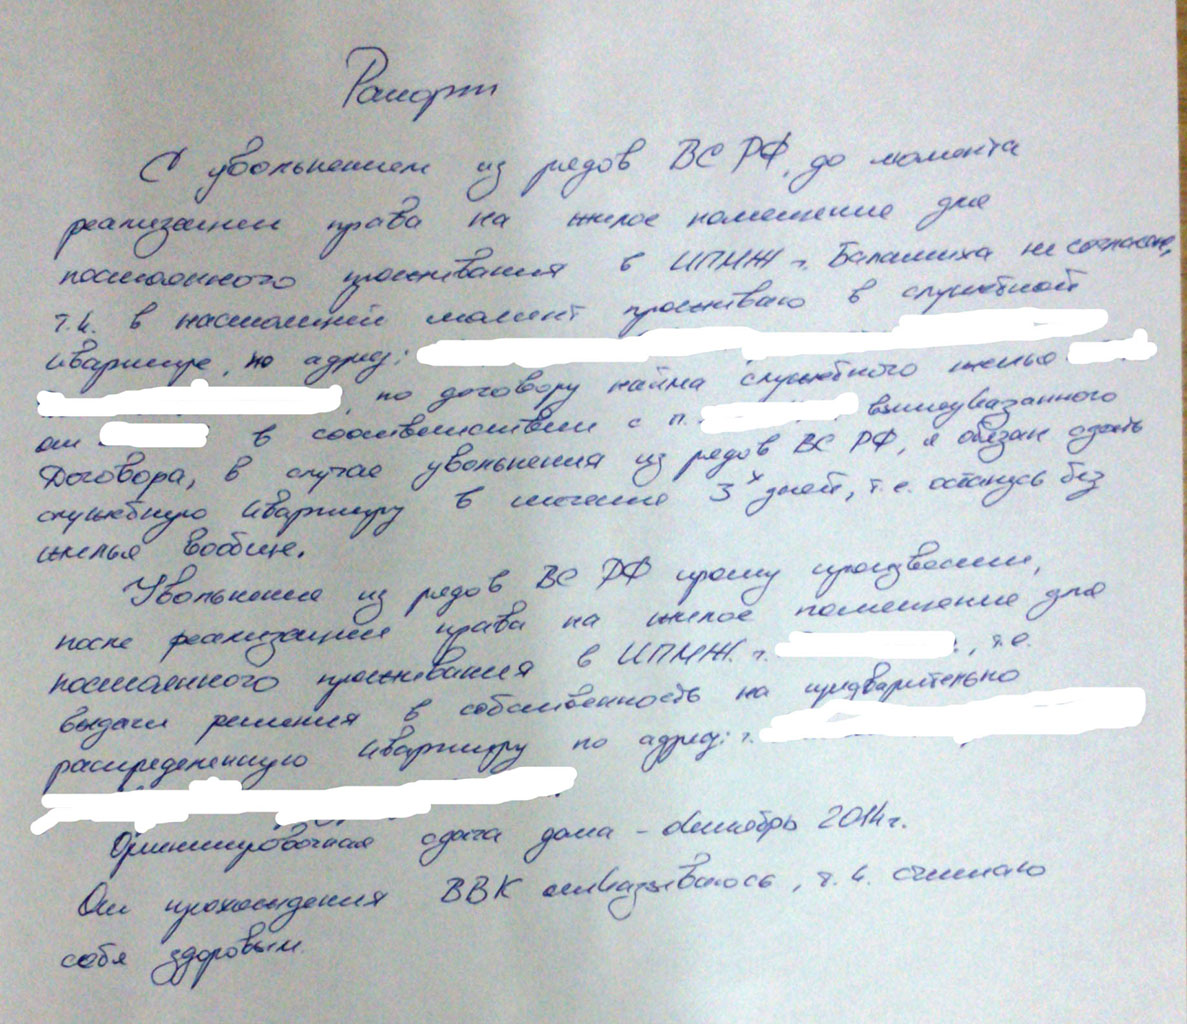 Рапорт
С увольнением из рядов ВС РФ, до момента
реализации права на жилое помещение для
постоянного проживания в ИПМЖ г. Балашиха не согласен,
т.к. в настоящий момент проживаю в служебной
квартире, по адресу:
, по договору найма служебного жилья
от в соответствии с п. вышеуказанного
Договора, в случае увольнения из рядов ВС РФ, я обязан сдать
служебную квартиру в течение 3х дней, т.е. останусь без
жилья вообще.
Увольнение из рядов ВС РФ прошу произвести,
после реализации права на жилое помещение для
постоянного проживания в ИПМЖ г. , т.е.
выдачи решения в собственность на предварительно
распределенную квартиру по адресу: г.
Ориентировочная сдача дома - декабрь 2014г.
От прохождения ВВК отказываюсь, т.к. считаю
себя здоровым.